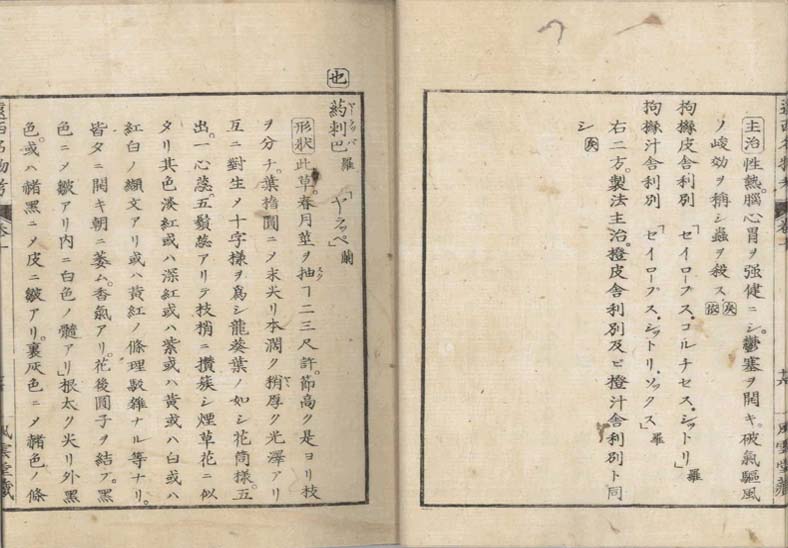 主治性熱。腦心胃ヲ强健ニシ。鬱塞ヲ開キ。破氣驅風
ノ峻効ヲ稱シ蟲ヲ殺ス
拘櫞皮舎利別 「セイロープス・コルチセス・シットリ」羅
拘櫞汁舎利別 「セイロープス・シットリ・ソックス」羅
右二方。製法主治。橙皮舎利別及ビ橙汁舎利別ト同
シ
遠西名物考 卷十 風雲堂藏
也
葯剌巴 ヤラッパ 羅 「ヤラッペ」蘭
形狀此草。春月莖ヲ抽ヿ二三尺許。節高ク是ヨリ枝
ヲ分チ。葉楕圓ニメ末尖リ本濶ク稍厚ク光澤アリ
互ニ對生メ十字樣ヲ爲シ龍葵葉ノ如シ花筒樣。五
出。一心蕊。五鬚蕊アリテ枝梢ニ攢簇シ煙草花ニ似
タリ其色淡紅或ハ深紅或ハ紫或ハ黄或ハ白或ハ
紅白ノ纈文アリ或ハ黄紅ノ條理駁雜ナル等ナリ。
皆夕ニ開キ朝ニ萎ム。香氣アリ。花後圓子ヲ結ブ。黑
色ニメ皺アリ内ニ白色ノ髓アリ」根太ク尖リ外黑
色。或ハ赭黑ニメ皮ニ皺アリ。裏灰色ニメ赭色ノ條
遠西名物考 卷十 風雲堂藏